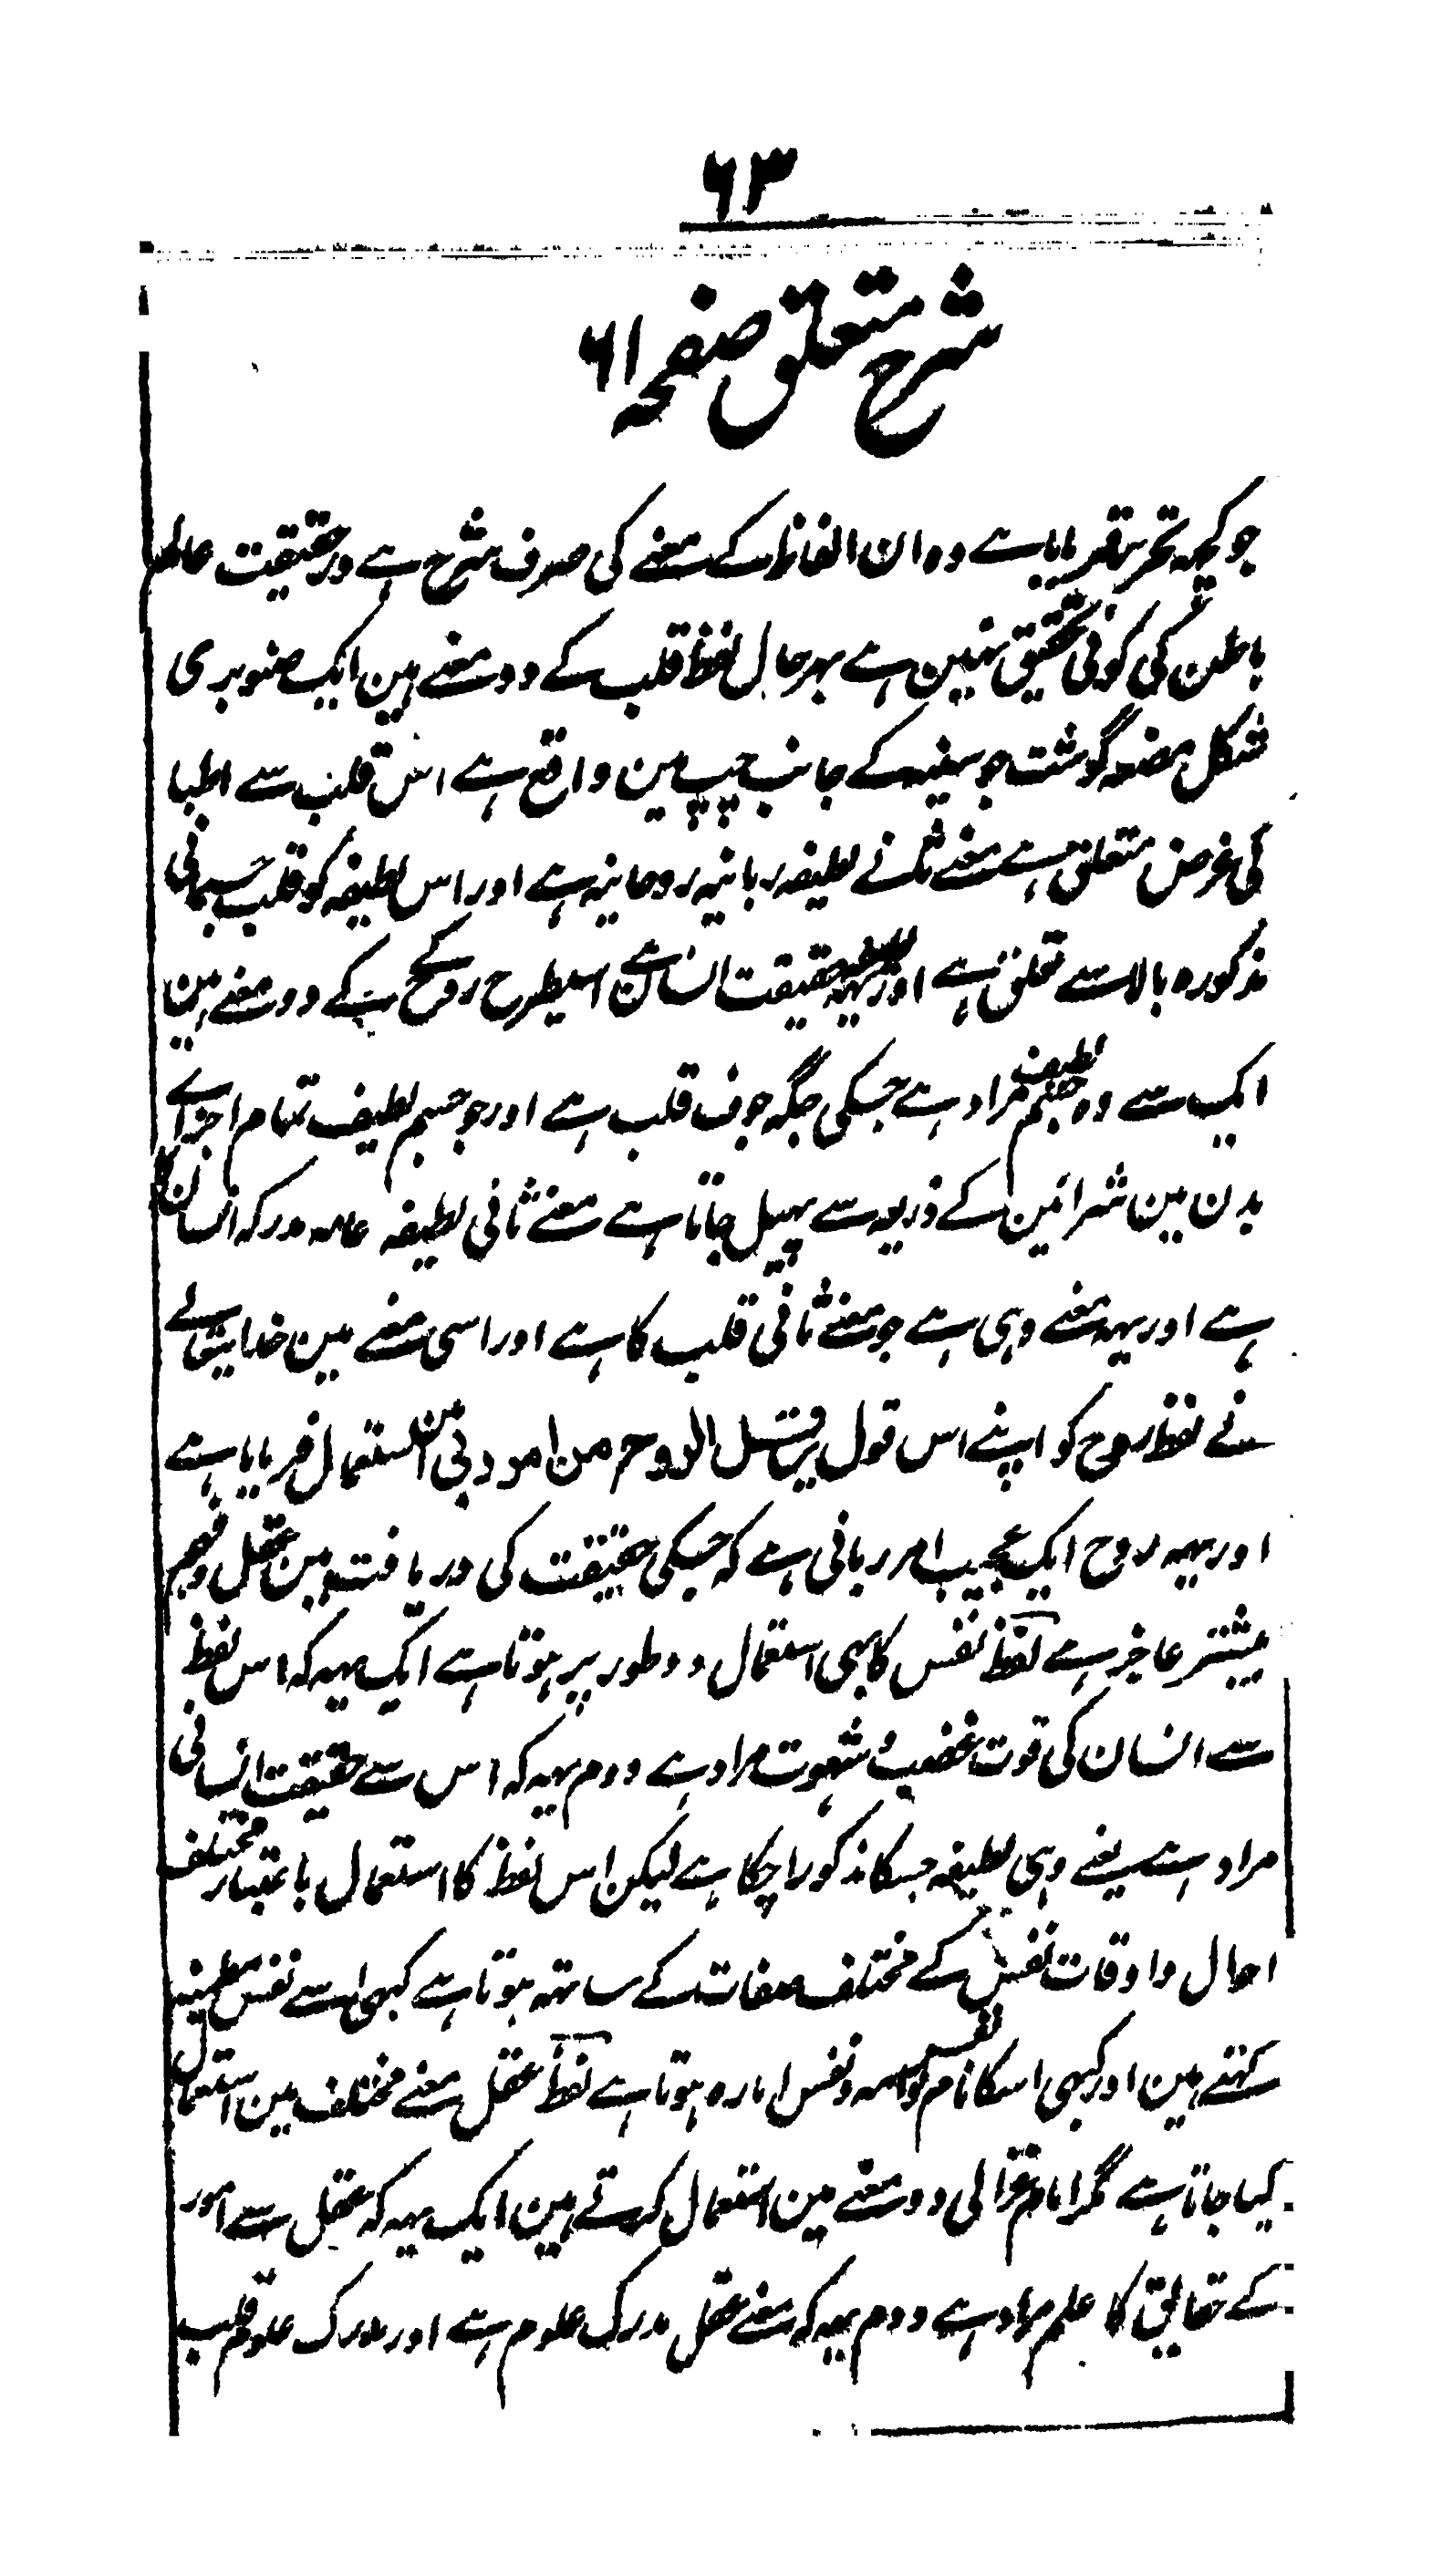 ۶۳
شرح متعلق صفحہ ۶۱
جو کچہہ تحریر فرمایا ہے وہ ان الفاظ کے معنے کی صرف شرح ہے درحقیقت حالت
باطن کی کوئی تحقیق نہین ہے بہر حال لفظ قلب کے دو معنے ہین ایک صنوبری
شکل مضغہ گوشت جو سینہ کے جانب چپ مین واقع ہے اس قلب سے اطبا
کی غرض متعلق ہے معنے ثانے لطیفہ ربانیہ روحانیہ ہے اور اس لطیفہ کو قلب جسمانی
مذکورہ بالا سے تعلق ہے اور یہہ لطیفہ حقیقت انسان ہے اسیطرح روح کے دو معنے ہین
ایک سے وہ جسم لطیف مراد ہے جسکی جگہ جوف قلب ہے اور جو جسم لطیف تمام اجزاے
بدن مین شرائین کے ذریعہ سے پہیل جاتا ہے معنے ثانی لطیفہ عالمہ مدرکہ انسان کا
ہے اور یہہ معنے وہی ہے جو معنے ثانی قلب کا ہے اور اسی معنے مین خدایتعالے
نے لفظ روح کو اپنے اس قول قل الروح من امر ربی مین استعمال فرمایا ہے
اور یہہ روح ایک عجیب امر ربانی ہے کہ جسکی حقیقت کی دریافت مین عقل و فہم
بیشتر عاجز ہے لفظ نفس کا بہی استعمال دو طور پر ہوتا ہے ایک یہہ کہ اس لفظ
سے انسان کی قوت غضب و شہوت مراد ہے دوم یہہ کہ اس سے حقیقت انسانی
مراد ہے یعنے وہی لطیفہ جسکا مذکور اچکا ہے لیکن اس لفظ کا استعمال باعتبار مختلف
احوال و اوقات نفس کے مختلف صفات کے ساتہہ ہوتا ہے کبہی اسے نفس مطمئنہ
کہتے ہین اور کبہی اسکا نام نفس لوامہ و نفس امارہ ہوتا ہے لفظ عقل معنے مختلف مین استعمال
کیا جاتا ہے مگر امام غزالی دو معنے مین استعمال کرتے ہین ایک یہہ کہ عقل سے امور
کے حقایق کا علم مراد ہے دوم یہہ کہ معنے عقل مدرک علوم ہے اور مدرک علوم قلب